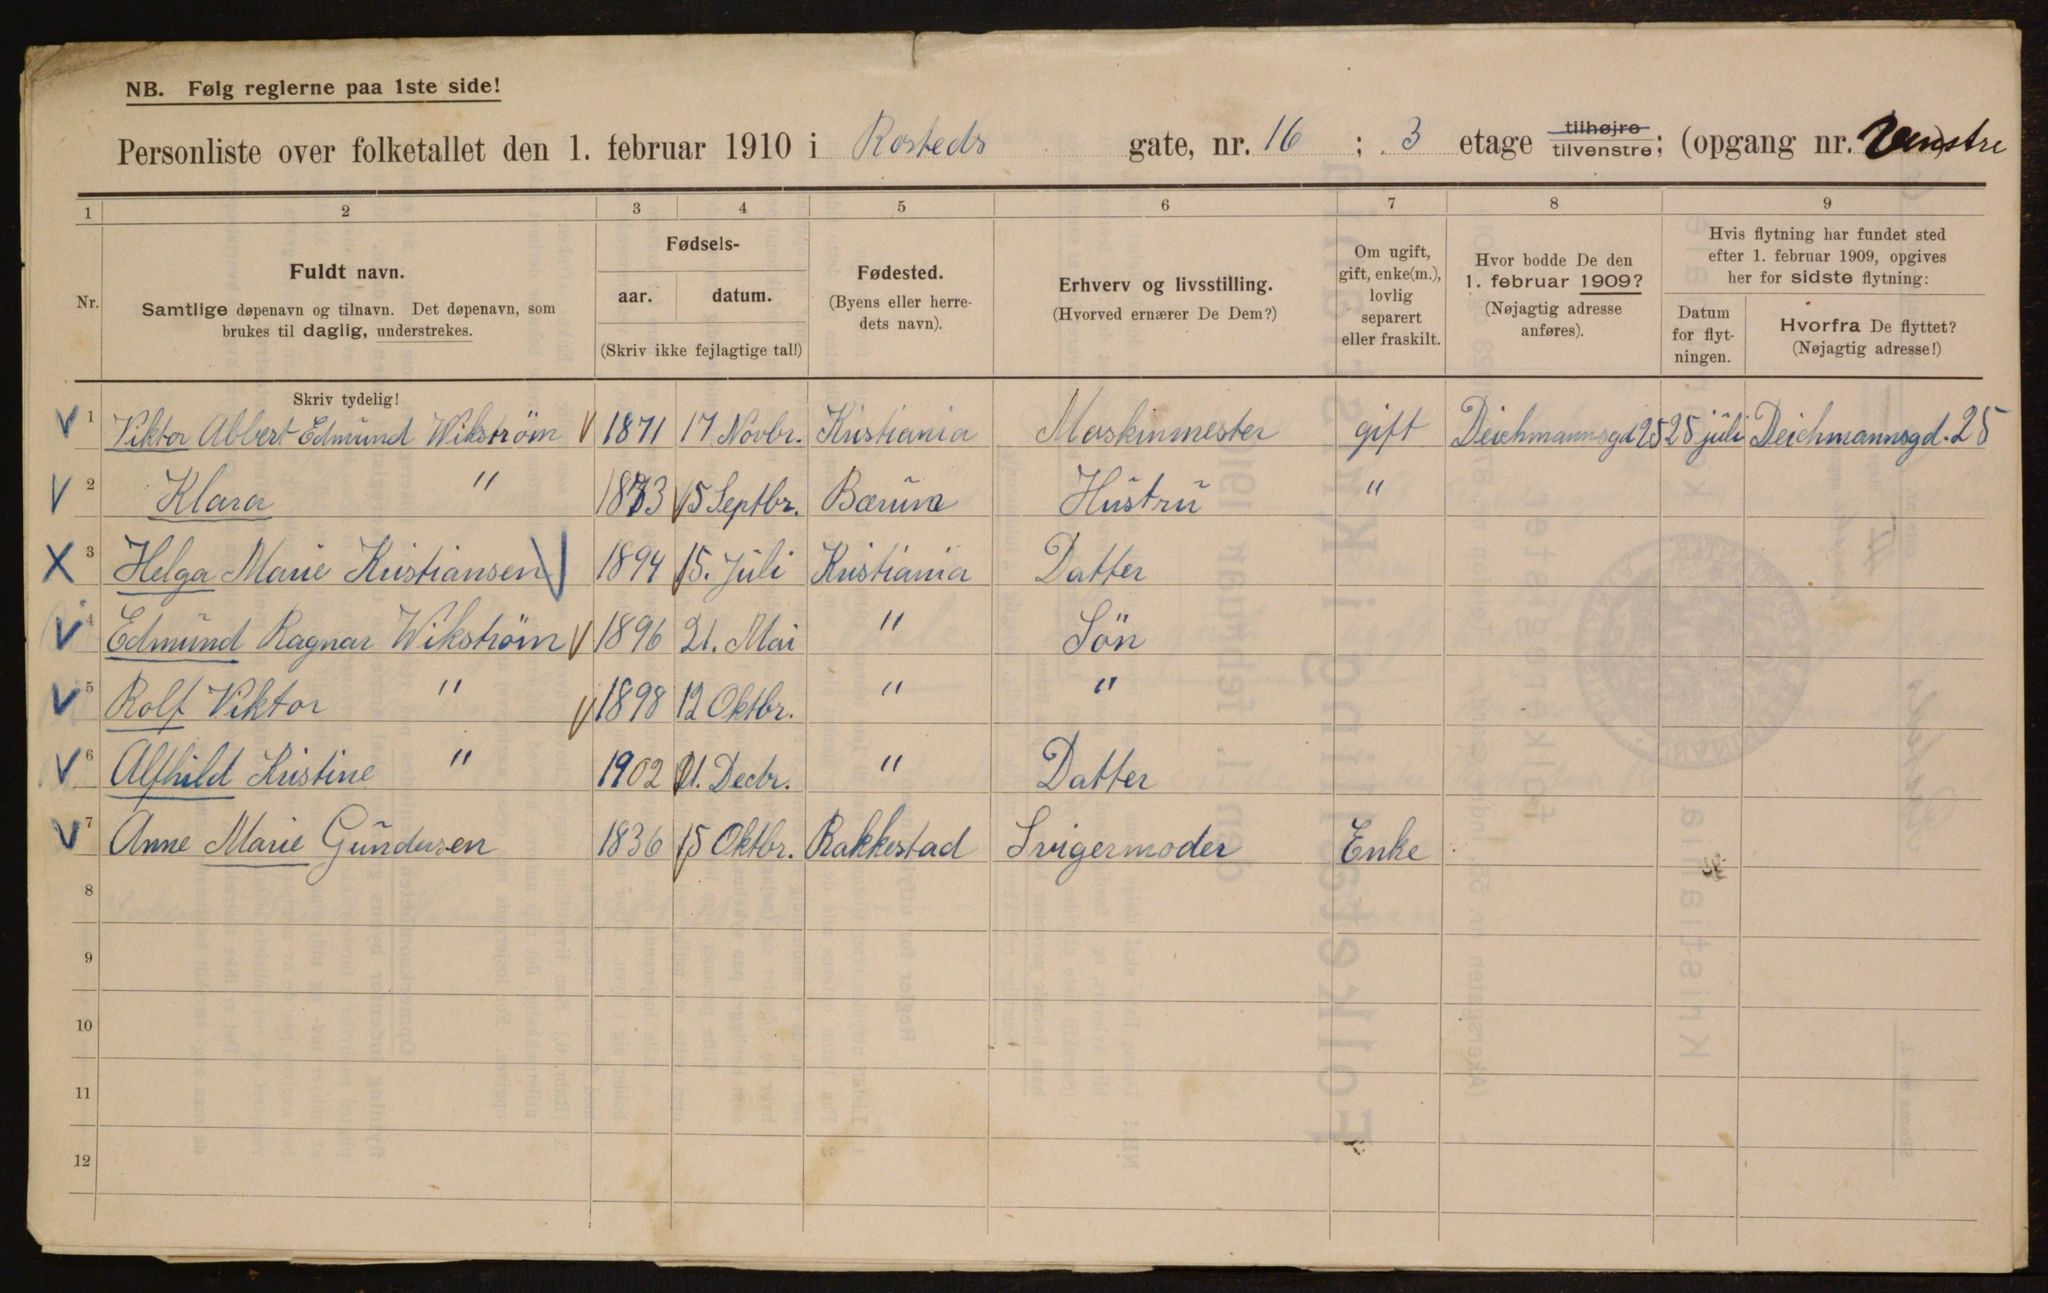 NB. Følg reglerne paa 1ste side!
Personliste over folketallet den 1. februar 1910 i Rosteds gate, nr. 16 ; 3 etage tilhøjre tilvenstre; (opgang nr. Venstre
1 2 3 4 5 6 7 8 9
Nr.
Fuldt navn.
Samtlige døpenavn og tilnavn. Det døpenavn, som
brukes til daglig, understrekes.
Fødsels-
aar. datum.
(Skriv ikke fejlagtige tal!)
Fødested.
(Byens eller herre-
dets navn).
Erhverv og livsstilling.
(Hvorved ernærer De Dem?)
Om ugift,
gift, enke(m.),
lovlig
separert
eller fraskilt.
Hvor bodde De den
1. februar 1909?
(Nøjagtig adresse
anføres).
Hvis flytning har fundet sted
efter 1. februar 1909, opgives
her for sidste flytning:
Datum
for flyt-
ningen.
Hvorfra De flyttet?
(Nøjagtig adresse!)
Skriv tydelig!
1 Viktor Albert Edmund Wikstrøm 1871 17 Novbr. Kristiania Maskinmester gift Deichmannsgd 25 25 juli Deichmannsgd. 25
2 Klara " 1873 15 Septbr. Bærum Hustru "
3 Helga Marie Kristiansen 1894 15. Juli Kristiania Datter
4 Edmund Ragnar Wikstrøm 1896 21. Mai " Søn
5 Rolf Viktor " 1898 12 Oktbr. " "
6 Alfhild Kristine " 1902 21. Decbr. " Datter
7 Anne Marie Gundersen 1836 15 Oktbr. Rakkestad Svigermoder Enke
8
9
10
11
12